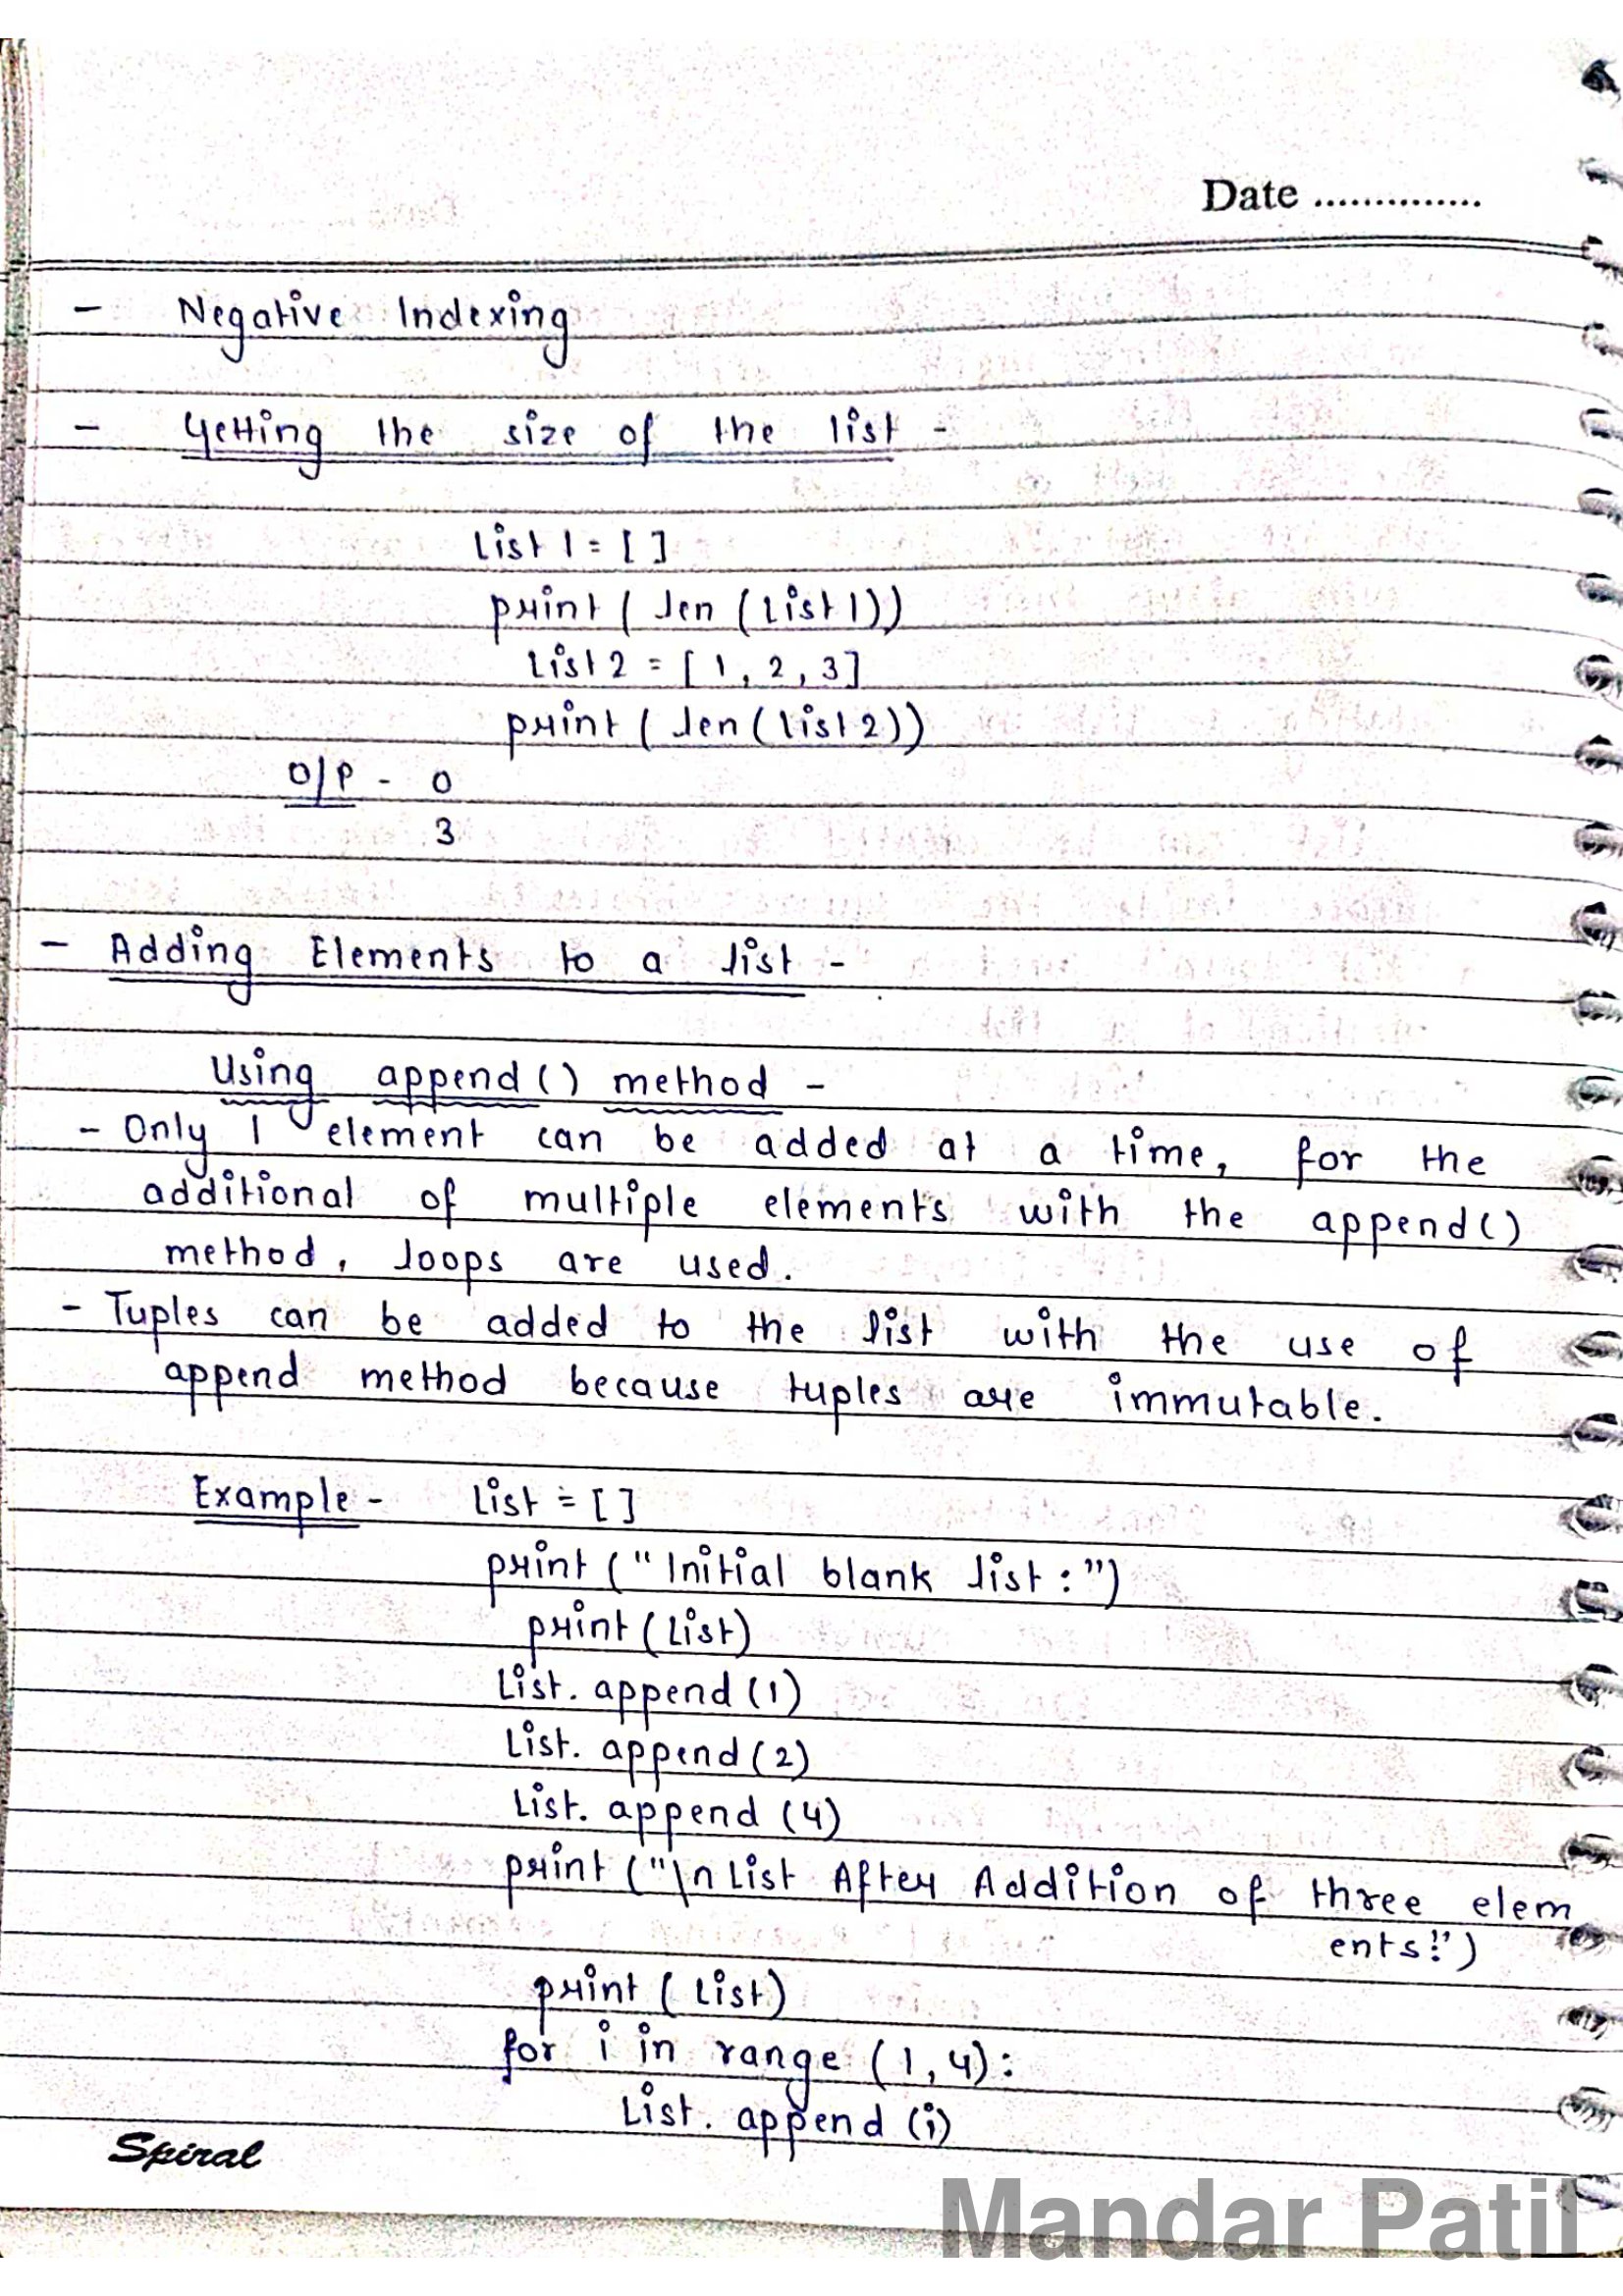 Date ..............
- Negative Indexing
- Getting the size of the list -
List 1 = [ ]
print ( len (List 1))
List 2 = [ 1, 2, 3]
print ( len (list 2))
O/P - 0
3
- Adding Elements to a list -
Using append () method -
- Only 1 element can be added at a time, for the
additional of multiple elements with the append()
method, loops are used.
- Tuples can be added to the list with the use of
append method because tuples are immutable.
Example - List = [ ]
print (" Initial blank list : ")
print (List)
List. append (1)
List. append (2)
List. append (4)
print ("\n List After Addition of three elem
ents:")
print ( List)
for i in range (1, 4):
List. append (i)
Spiral
Mandar Patil